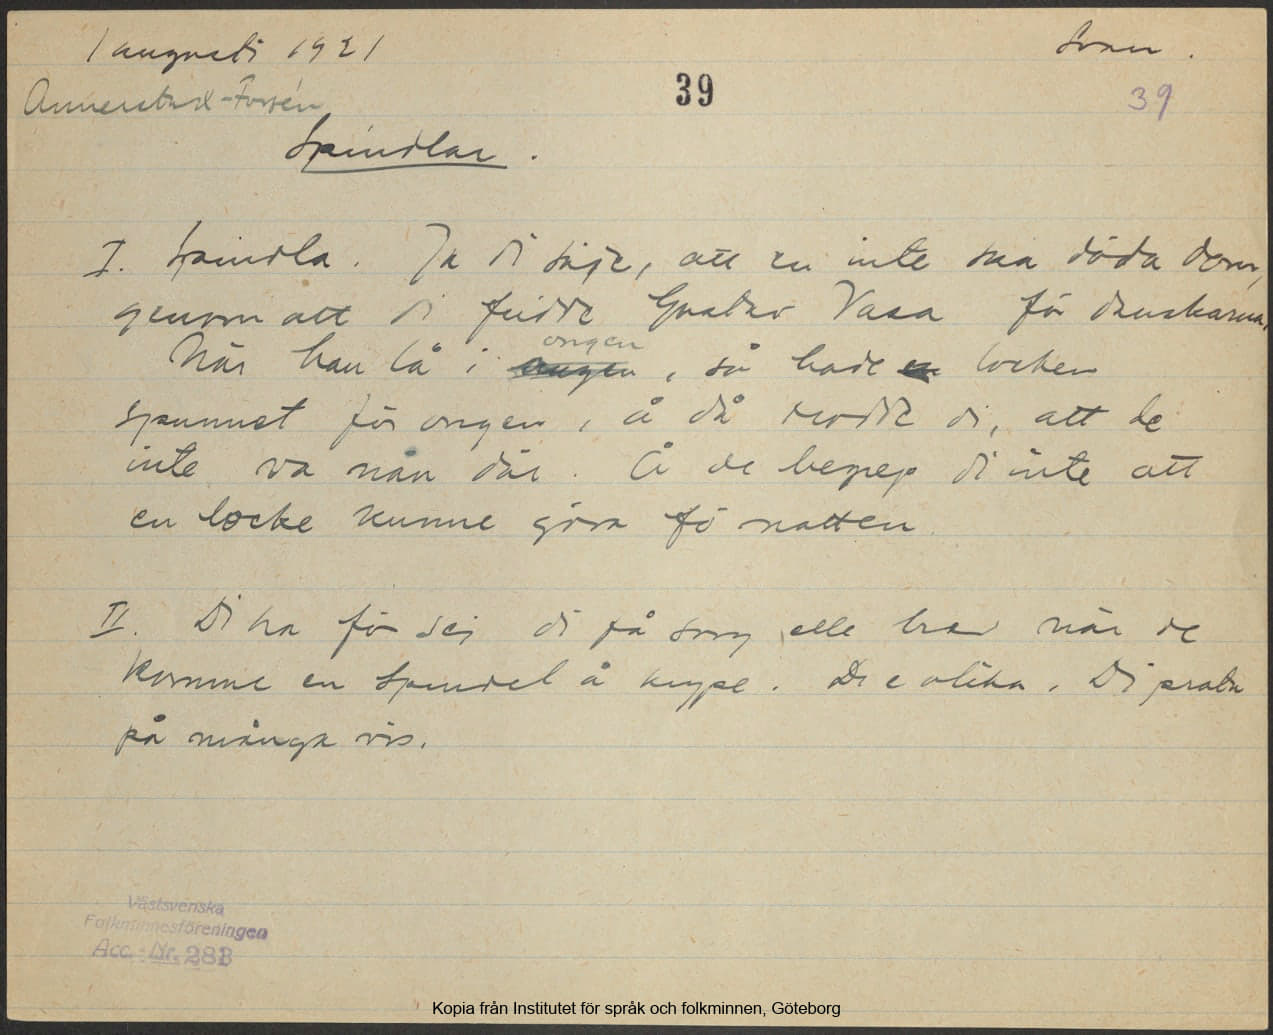 1 augusti 1921
Sven.
39
39
Annerstedt-Forsén
Spindlar.
I. Spindla. Ja di säje, att en inte ska döda dom,
genom att di fridde Gustav Vasa för danskarna.
När han lå i ongen, så hade locken
spunnet för ongen, å då trodde di, att de
inte va nån där. Å de begrep di inte att
en locke kunne göra fö natten.
II. Di ha för sej di få sorg elle brev när de
komme en spindel å krype. De e olika. Di prata
på många vis.
Västsvenska
Folkminnesföreningen
Acc.-Nr. 283
Kopia från Institutet för språk och folkminnen, Göteborg